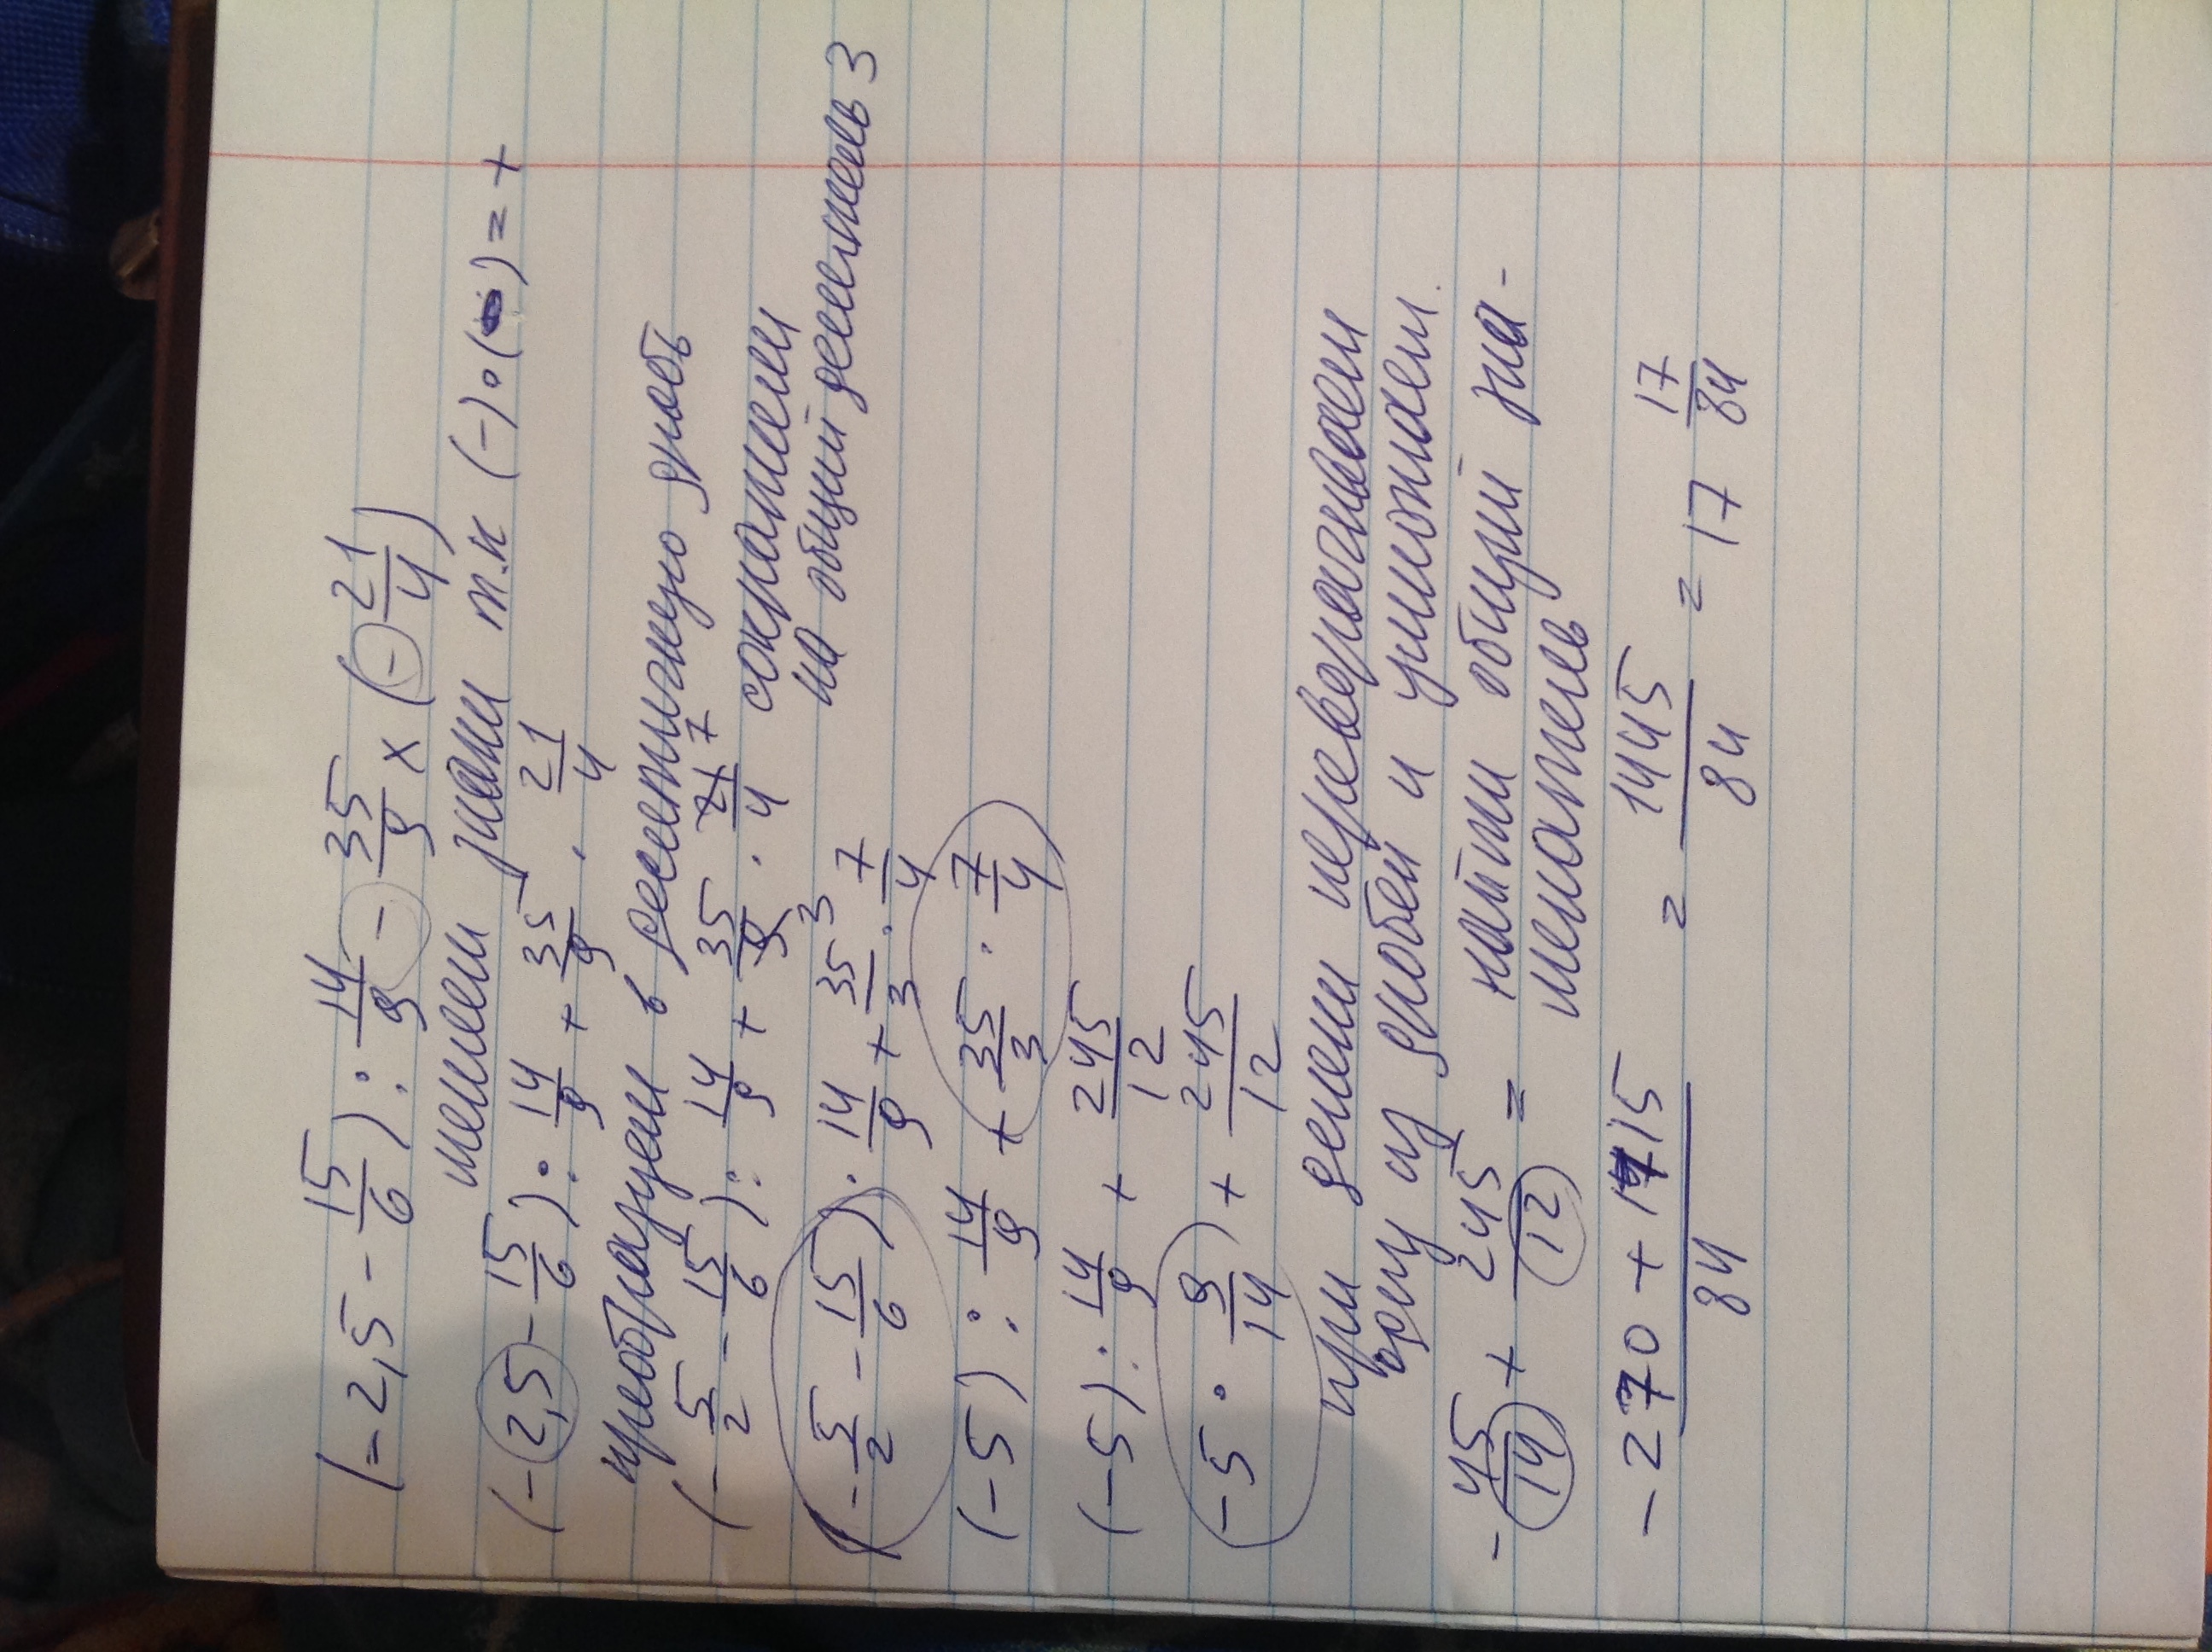 (-2,5 - 15/6) : 14/9 - 35/9 x (- 21/4)
меняем знаки т.к (-)·(-) = +
(-2,5 - 15/6) : 14/9 + 35/9 · 21/4
преобразуем в десятичную дробь
(- 5/2 - 15/6) : 14/9 + 35/9 3 · 21/4 7 сократили
на общий делитель 3
(- 5/2 - 15/6) · 14/9 + 35/3 · 7/4
(-5) : 14/9 + 35/3 · 7/4
(-5) : 14/9 + 245/12
-5 · 9/14 + 245/12
при делении переворачиваем
одну из дробей и умножаем.
- 45/14 + 245/12 = найти общий зна-
менатель
-270 + 1715 / 84 = 1445/84 = 17 17/84